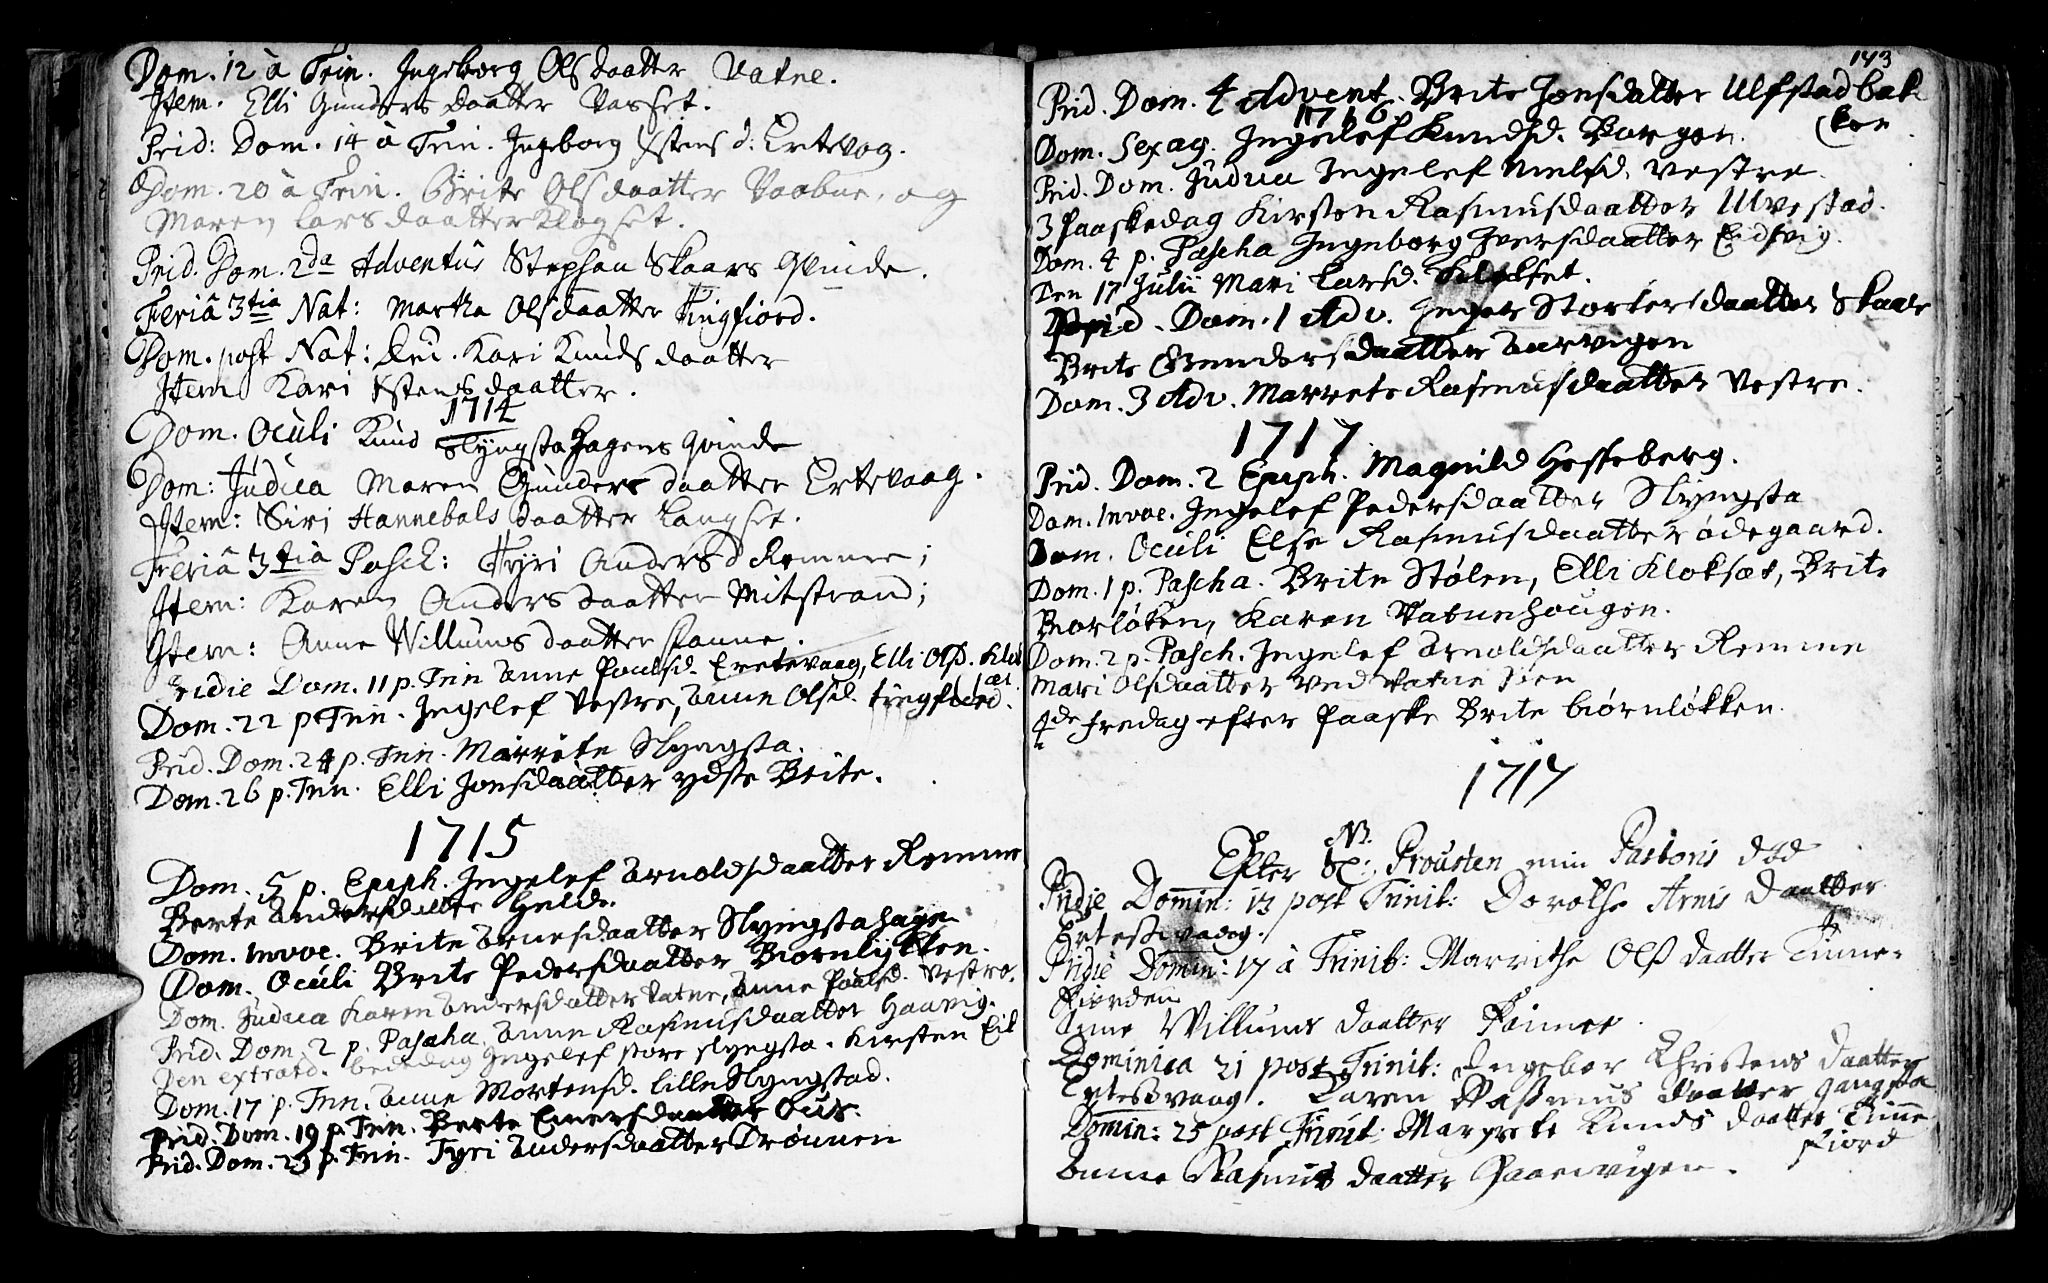 Dom. 12 à Trin. Ingeborg Olsdaatter Vatne.
Item. Elli Gunders daatter Vasset.
Prid: Dom. 14 à Trin. Ingeborg Istens d: Ertevog.
Dom. 20 à Trin. Brite Olsdaatter Vaabne, og
Maren Larsdaatter Klogset.
Prid. Dom. 2da Adventus Stephan Skaars Qvinde.
Feriâ 3tia Nat: Martha Olsdaatter Tingfiord.
Dom. post Nat: Kari Knuds daatter
Item Kari Istensdaatter.
1714
Dom. Oculi Knud Slyngstahagens Qvinde
Dom: Judica Maren Gunders daatter Ertevaag.
Item: Siri Hannebals daatter Langset.
Feriâ 3tia Pasch: Tyri Anders d Remme;
Item: Karen Anders daatter Mitstrand;
Item: Anne Willums daatter Fanne.
Pridie Dom. 11 p. Trin Anne Poulsd. Eretevaag, Elli Olsd. Klok
sæt.
Dom. 22 p Trin. Ingelef Vestre, Anne Olsd. tingfiord.
Prid. Dom. 24 p. Trin. Marrite Slyngsta.
Dom. 26 p. Trin. Elli Jonsdaatter ydste Brite.
1715
Dom. 5 p. Epiph. Ingelef Arnoldsdaatter Remme
Berte Andersdaatter Helde.
Dom. Invoc. Brite Arnesdaatter Slyngstahage
Dom. Oculi Brite Pedersdaatter Biornlykken.
Dom. Judica Karen Andersdatter Vatne, Anne Poulsd. Vestre.
Prid. Dom. 2 p. Pascha. Anne Rasmusdaatter Haavig.
Den extraord. bededag Ingelef store slyngsta. Kirsten Eil
Dom. 17 p. Trin. Anne Mortensd. lille Slyngstad.
Prid. Dom. 19 p. Trin. Berte Einersdaatter Ous.
Prid. Dom. 23 p. Trin. Tyri Andersdaatter Drønnen
143
Prid. Dom. 4 Advent. Brite Jonsdatter Ulfstadbak
ken
1716
Dom. Sexag. Ingelef Knudsd. Borgen.
Prid. Dom. Judica Ingelef Nielsd. Vestre.
3 Paaskedag Kirsten Rasmusdaatter Ulvestad.
Dom. 4 p. Pascha Ingeborg Iversdaatter Eidsvig.
Den 17 Julii Mari Larsd. Klokset.
Prid. Dom. 1 Adv. Inger Storkersdaatter Skaar
Brite Gundersdaatter Aarvigen
Dom. 3 Adv. Marrete Rasmusdaatter Vestre.
1717
Prid. Dom. 2 Epiph. Magnild Hesseberg.
Dom. Invoc. Ingelef Pedersdaatter Slyngsta
Dom. Oculi Else Rasmusdaatter ødegaard.
Dom. 1 p. Pascha. Brite Stølen, Elli Kloksæt, Brite
Borløken, Karen Vatnehougen.
Dom. 2 p. Pasch. Ingelef Arnoldsdaatter Remme
Mari Olsdaatter ved Vatne Siøn
4de Fredag efter Paaske Brite biørnløkken.
1717
NB.
Efter Sl: Prousten min Pastoris død
Pridie Domin: 13 post Trinit: Dorothe Arnis Daatter
Ertessvaag.
Pridie Domin: 17 à Trinit: Marrithe Olss daatter Tinne-
fiorden
Anne Willums daatter Fanne.
Dominica 21 post Trinit: Ingebor Christens daatter
Ertessvaag. Karen Rasmus daatter Gangsta
Domin: 25 post Trinit: Maryrete Knuds daatter Tinne
fiord
Anne Rasmus daatter Haarvigen.